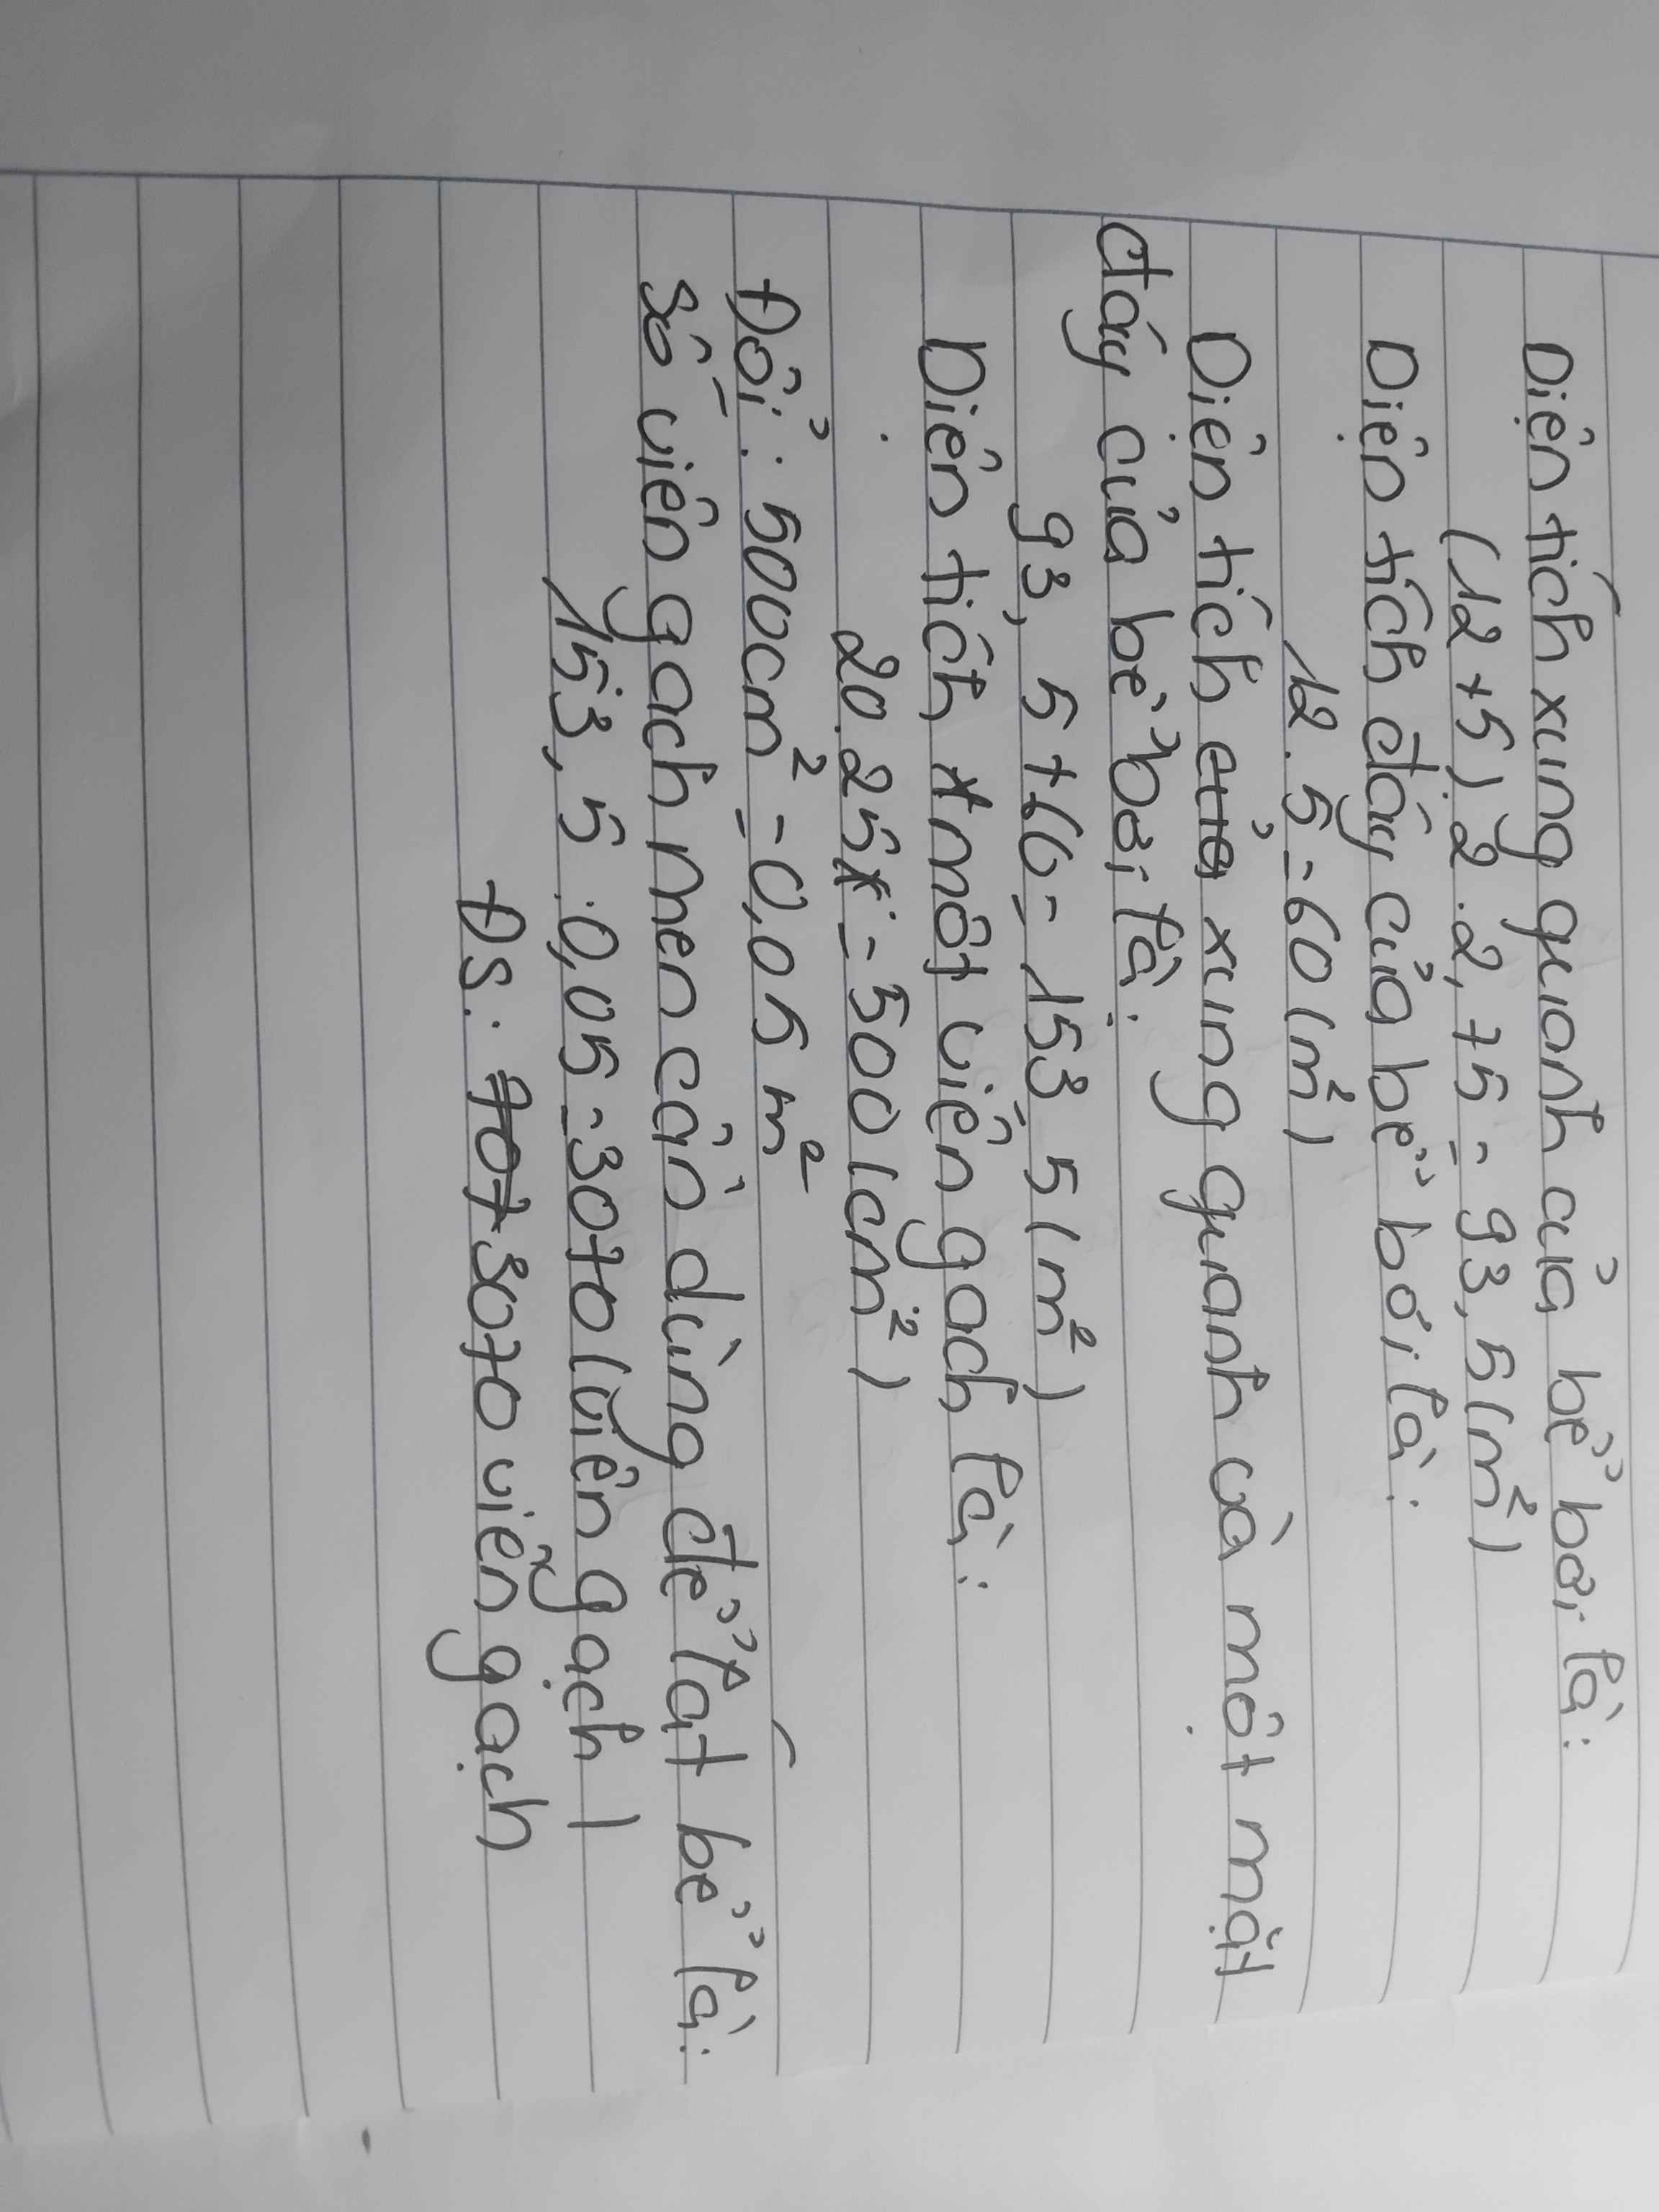 Diện tích xung quanh của bể bơi là:
(12 + 5) . 2 . 2,75 = 93,5 (m²)
Diện tích đáy của bể bơi là:
12 . 5 = 60 (m²)
Diện tích xung quanh và một mặt
đáy của bể bơi là:
93,5 + 60 = 153,5 (m²)
Diện tích một viên gạch là:
20 . 25 = 500 (cm²)
Đổi: 500cm² = 0,05 m²
Số viên gạch men cần dùng để lát bể là:
153,5 : 0,05 = 3070 (viên gạch)
ĐS: 3070 viên gạch